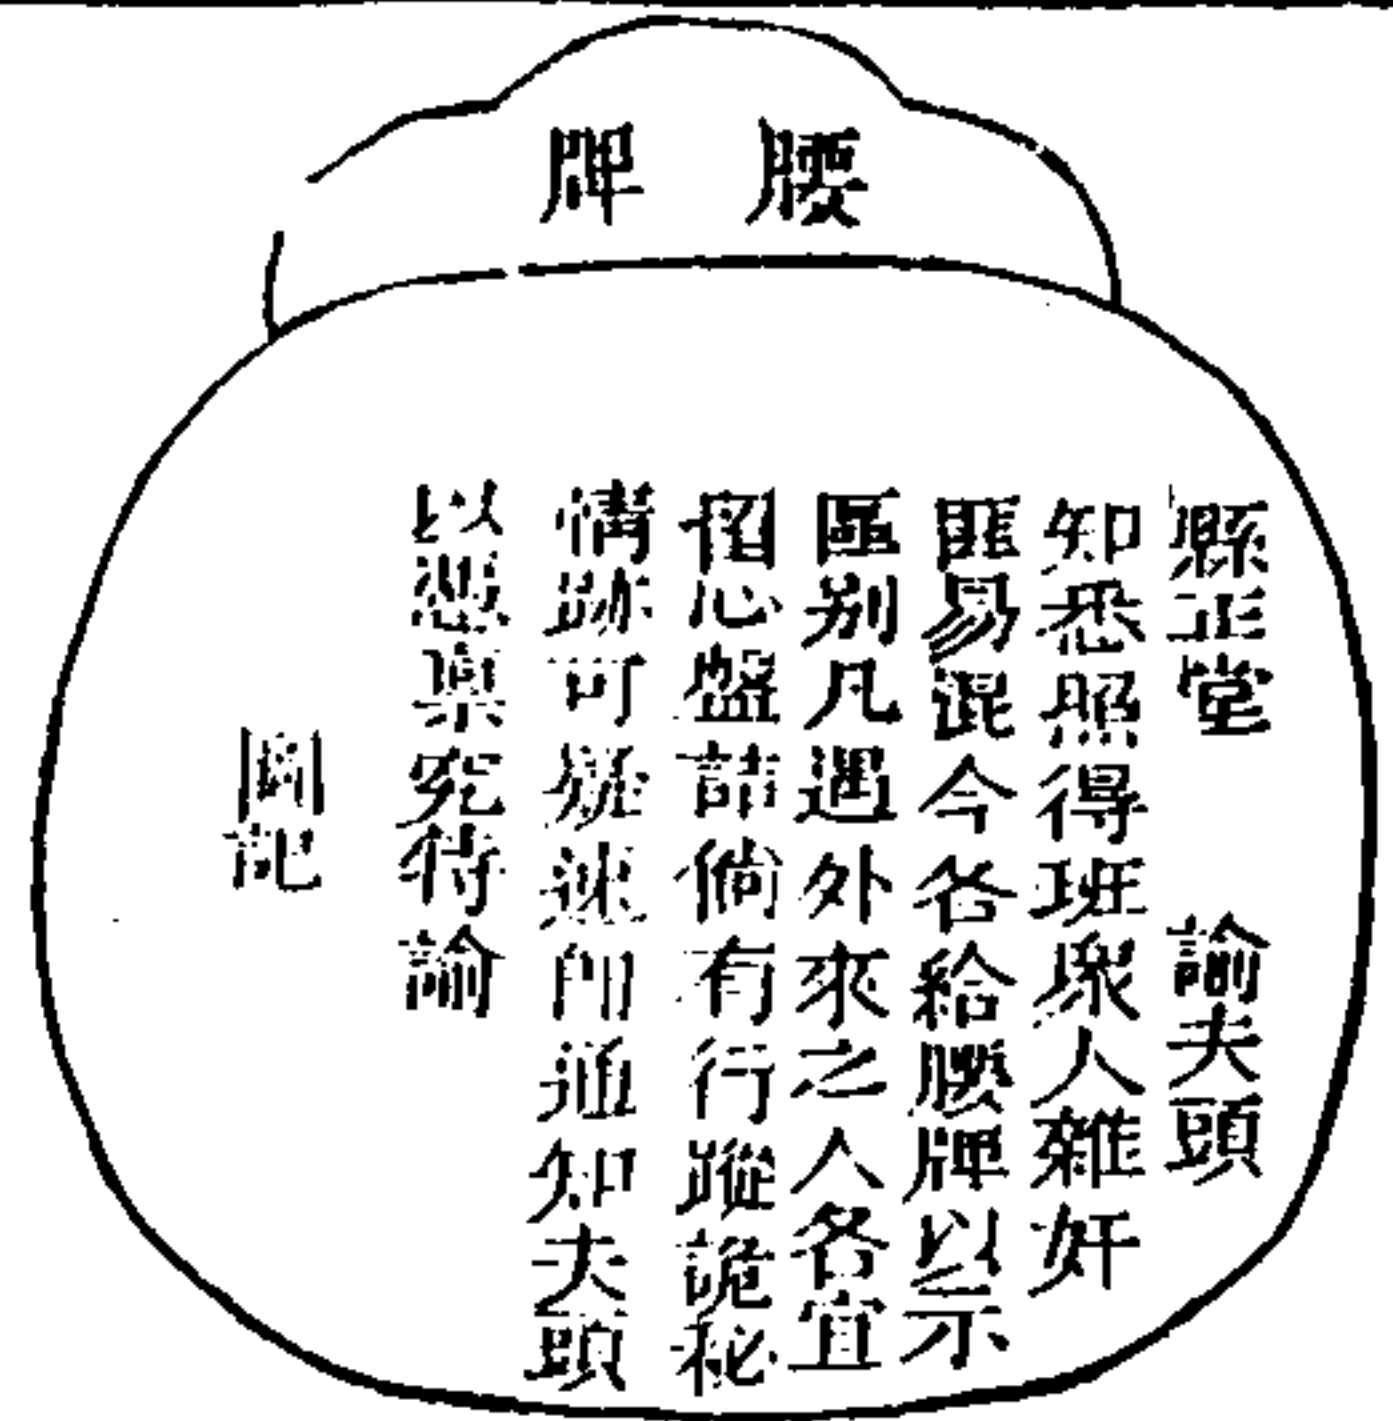 腰牌
縣正堂 諭夫頭
知悉照得班眾人雜奸
匪易混今各給腰牌以示
區别凡遇外來之人各宜
留心盤詰倘有行蹤詭秘
情跡可疑速即通知夫頭
以憑稟究特諭
圖記